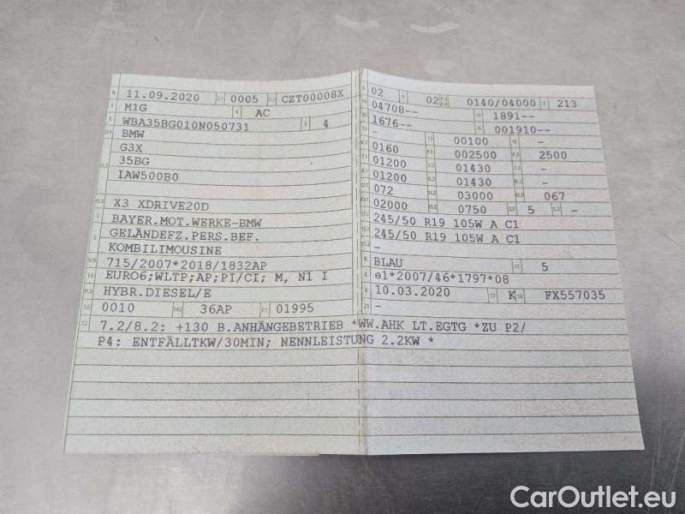 11.09.2020 0005 CZT00008X
M1G AC
WBA35BG010N050731 4
BMW
G3X
35BG
IAW500B0
X3 XDRIVE20D
BAYER.MOT.WERKE-BMW
GELÄNDEFZ.PERS.BEF.
KOMBILIMOUSINE
715/2007*2018/1832AP
EURO6;WLTP;AP;PI/CI; M, N1 I
HYBR.DIESEL/E
0010 36AP 01995
02 02 0140/04000 213
04708-- 1891--
1676-- 001910--
-
00100 -
0160 002500 2500
01200 01430 -
01200 01430 -
072 03000 067
02000 0750 5 -
245/50 R19 105W A C1
245/50 R19 105W A C1
-
BLAU 5
e1*2007/46*1797*08
10.03.2020 K FX557035
-
7.2/8.2: +130 B.ANHÄNGEBETRIEB *WW.AHK LT.EGTG *ZU P2/
P4: ENTFÄLLTKW/30MIN; NENNLEISTUNG 2.2KW *
CarOutlet.eu